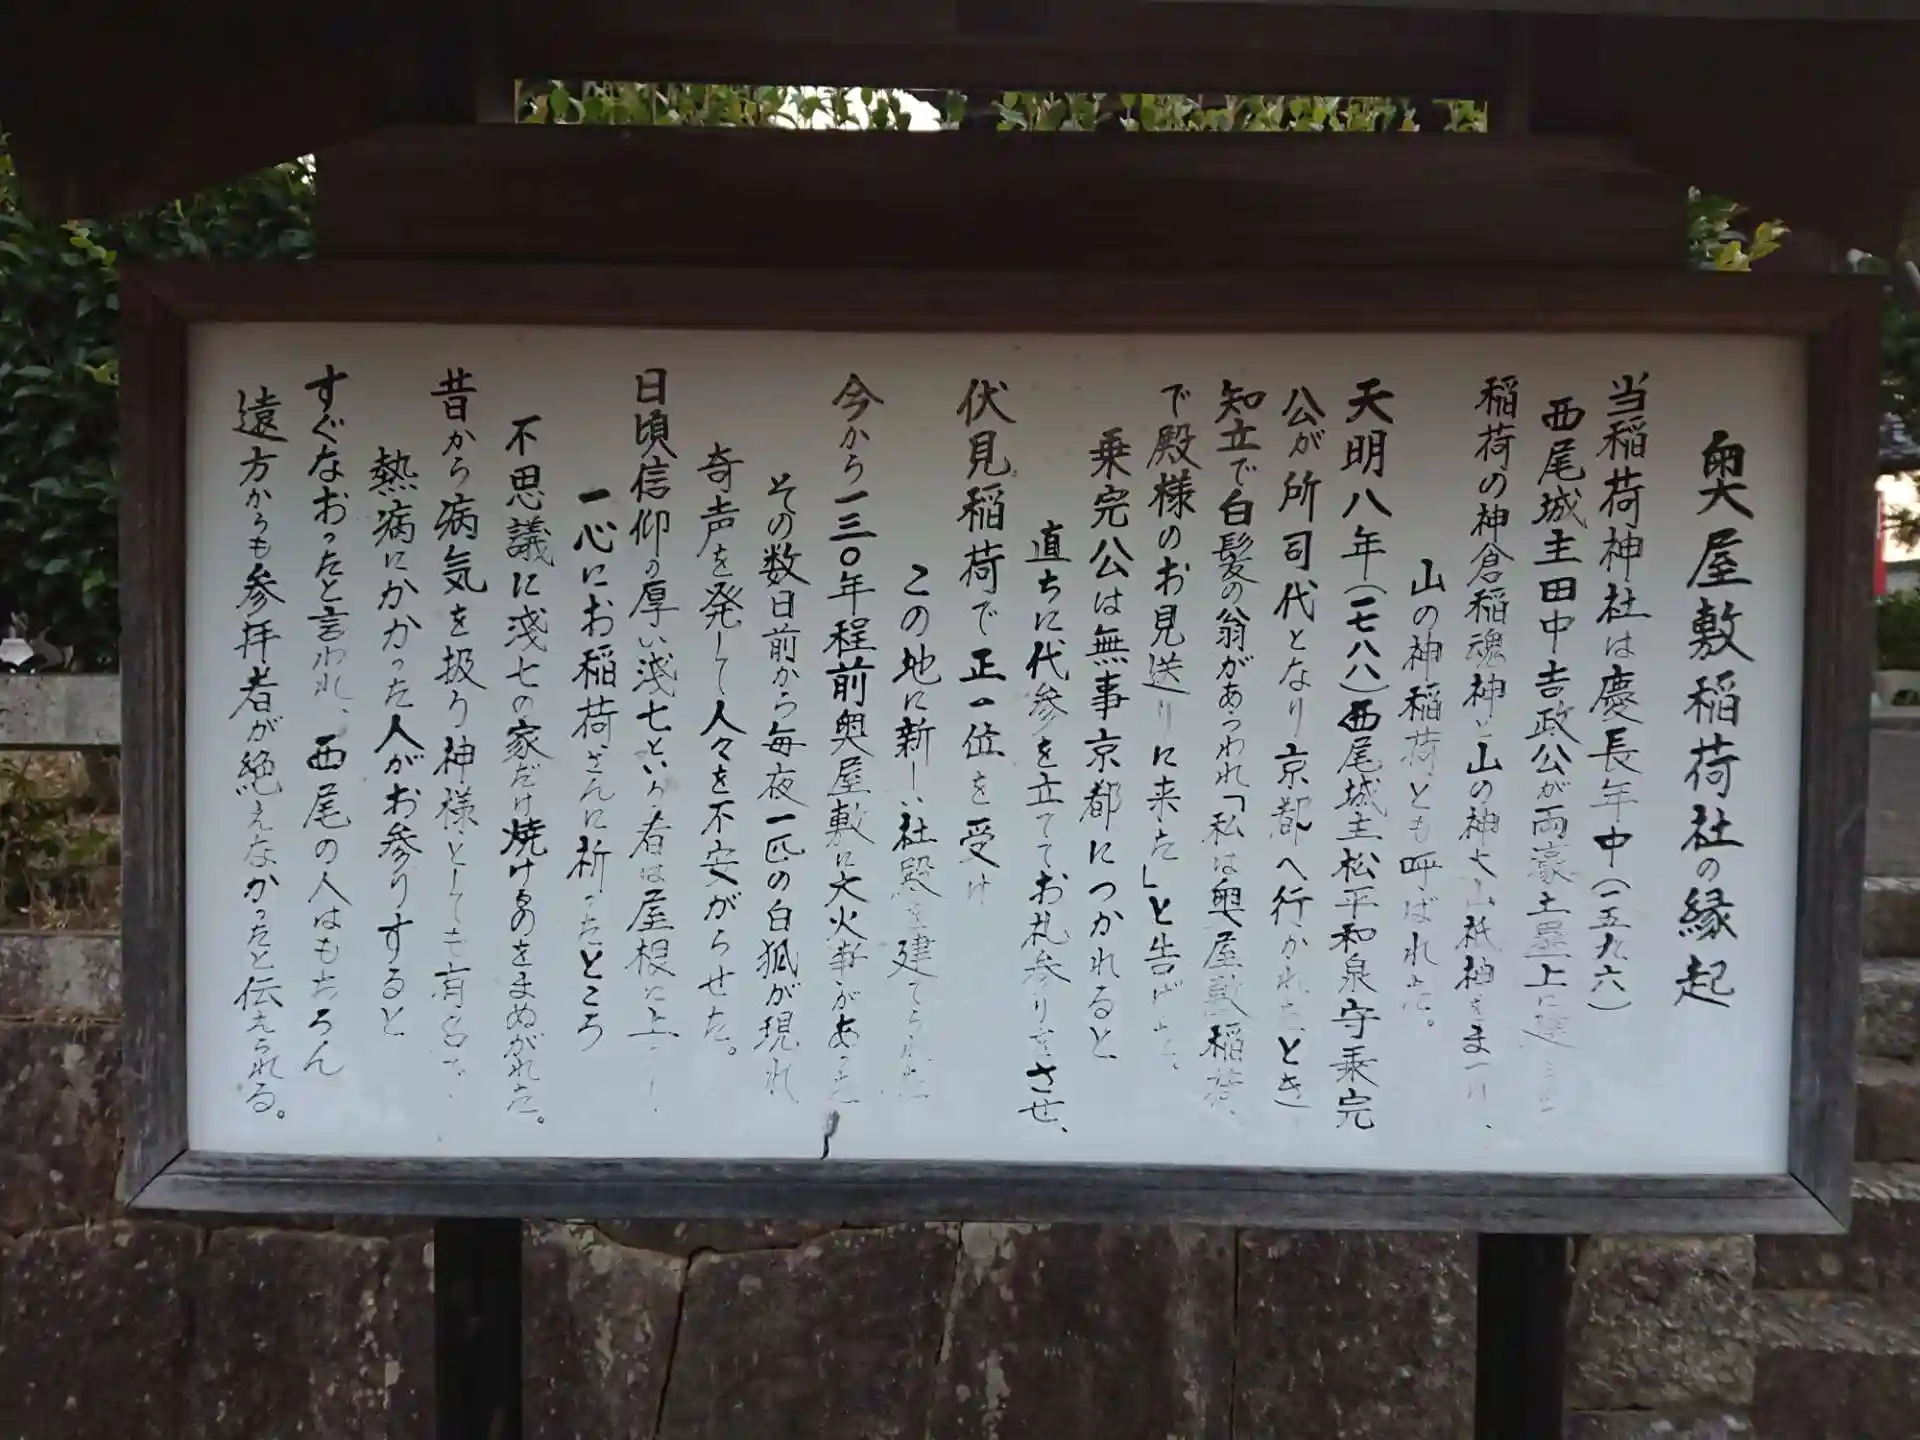 奥屋敷稲荷社の縁起
当稲荷神社は慶長年中(一五九六)
西尾城主田中吉政公が両濠土塁上に建
稲荷の神倉稲魂神と山の神大山祇神をま
山の神稲荷とも呼ばれた。
天明八年(一七八八)西尾城主松平和泉守乗完
公が所司代となり京都へ行かれたとき
知立で白髪の翁があらわれ「私は奥屋敷稲荷、
で殿様のお見送りに来た」と告げ
乗完公は無事京都につかれると
直ちに代参を立ててお札参りをさせ、
伏見稲荷で正一位を受け
この地に新しい社殿を建てられた
今から一三〇年程前奥屋敷に大火事があった
その数日前から毎夜一匹の白狐が現れ
奇声を発して人々を不安がらせた。
日頃信仰の厚い浅七という者は屋根に上
一心にお稲荷さんに祈ったところ
不思議に浅七の家だけ焼けるのをまぬがれた。
昔から病気を扱う神様としても有名で、
熱病にかかった人がお参りすると
すぐなおったと言われ、西尾の人はもちろん
遠方からも参拝者が絶えなかったと伝えられる。